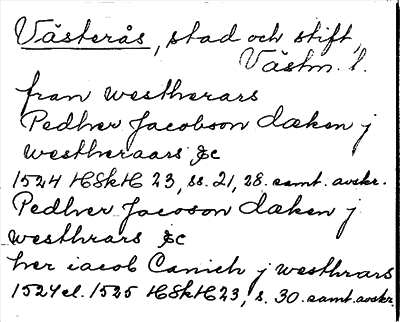 Västerås, stad och stift,
Västm. l.
fran westherars
Pedher Jacobson dæken j
westheraars &c
1524 HSkH 23, ss. 21, 28. samt. avskr.
Pedher Jacoson dæken j
westhrars &c
her iacob Canich j westhrars
1524 el. 1525 HSkH 23, s. 30. samt. avskr.